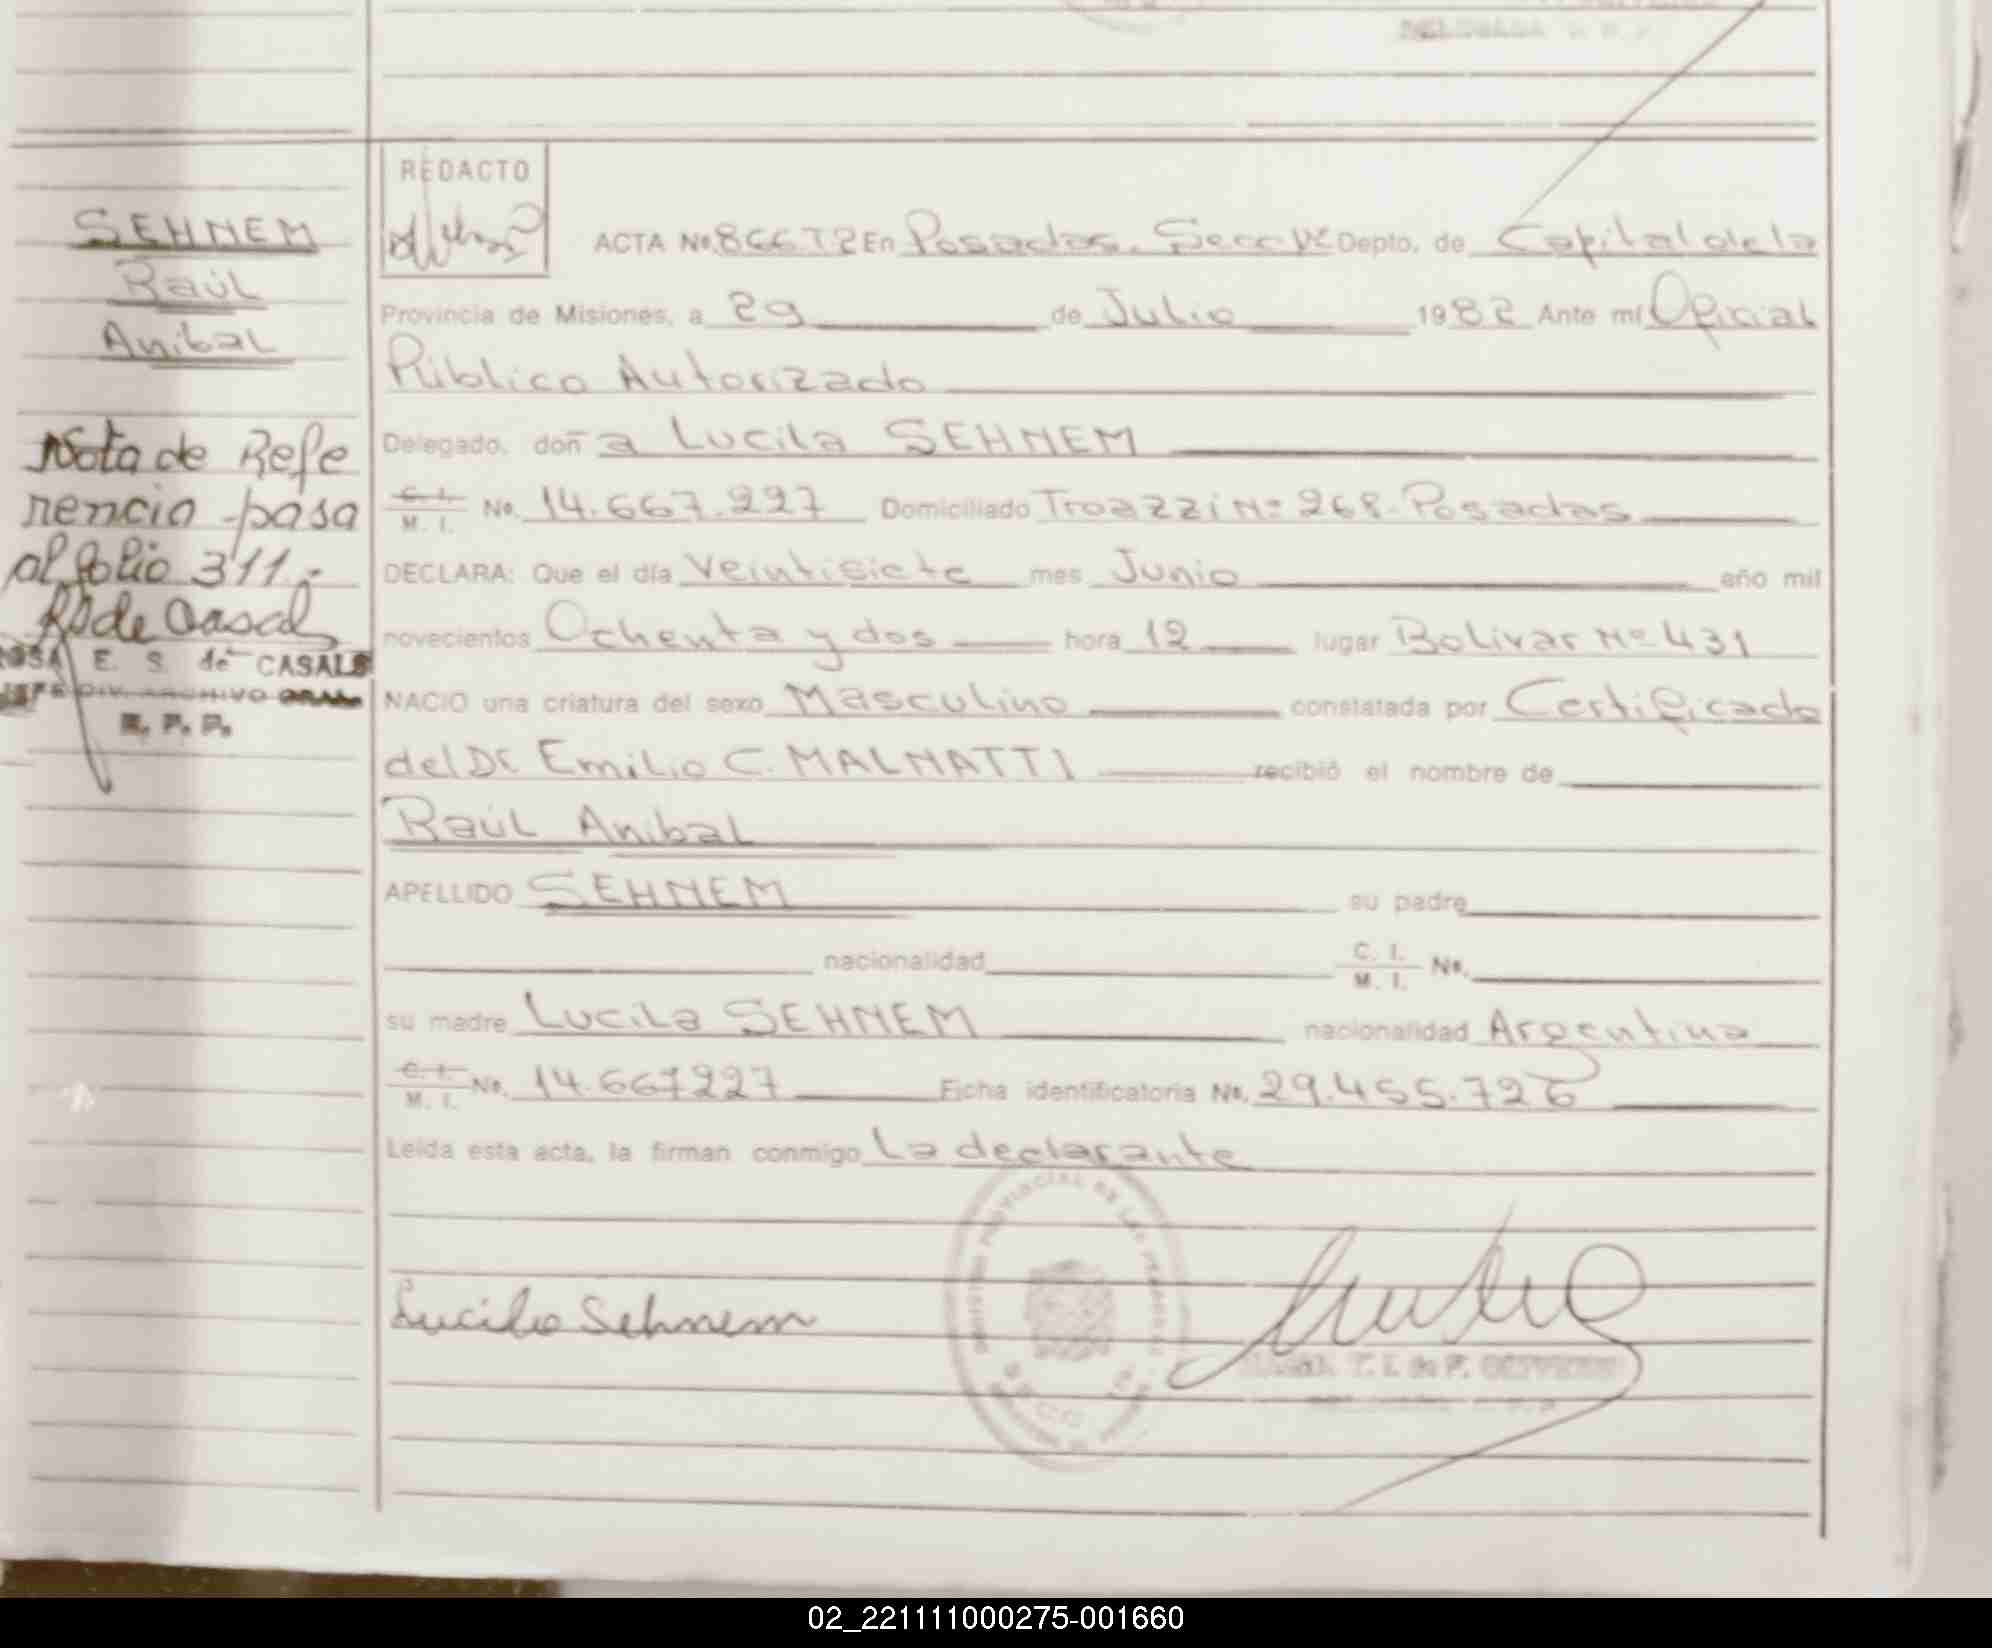 REDACTO
SEHNEM
Raúl
Anibal
Nota de Refe
rencia pasa
al folio 311.-
R S de Casals
ROSA E. S. de CASALS
JEFE DIV. ARCHIVO GRAL.
R. P. P.
ACTA No. En Posadas. Secc Depto. de Capital de la
Provincia de Misiones, a 29 de Julio 1982 Ante mí Oficial
Público Autorizado
Delegado, doña Lucila SEHNEM
C. I. M. I. No. 14.667.227 Domiciliado Troazzi Nº 268. Posadas
DECLARA: Que el día Veintisiete mes Junio año mil
novecientos Ochenta y dos hora 12 lugar Bolivar Nº 431
NACIO una criatura del sexo Masculino constatada por Certificado
del Dr Emilio C. MALNATTI recibió el nombre de
Raúl Anibal
APELLIDO SEHNEM su padre
nacionalidad C. I. M. I. No.
su madre Lucila SEHNEM nacionalidad Argentina
C. I. M. I. No. 14.667227 Ficha identificatoria No. 29.455.726
Leída esta acta, la firman conmigo La declarante
REGISTRO PROVINCIAL DE LAS PERSONAS
SECC
Lucila Sehnem
T. I. de P.
02_221111000275-001660